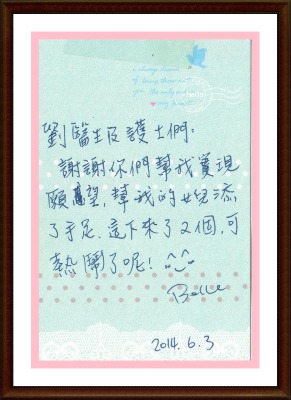 hello
劉醫生及護士們:
謝謝你們幫我實現
願望,幫我的女兒添
了手足.這下來了2個,可
熱鬧了呢!^_^
Belle
2014. 6. 3